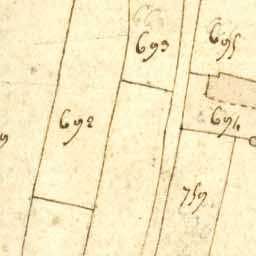 693
695
692
694
759